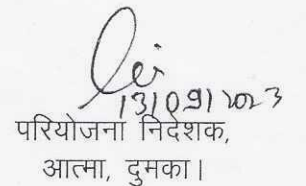 13/09/2023
परियोजना निदेशक,
आत्मा, दुमका।